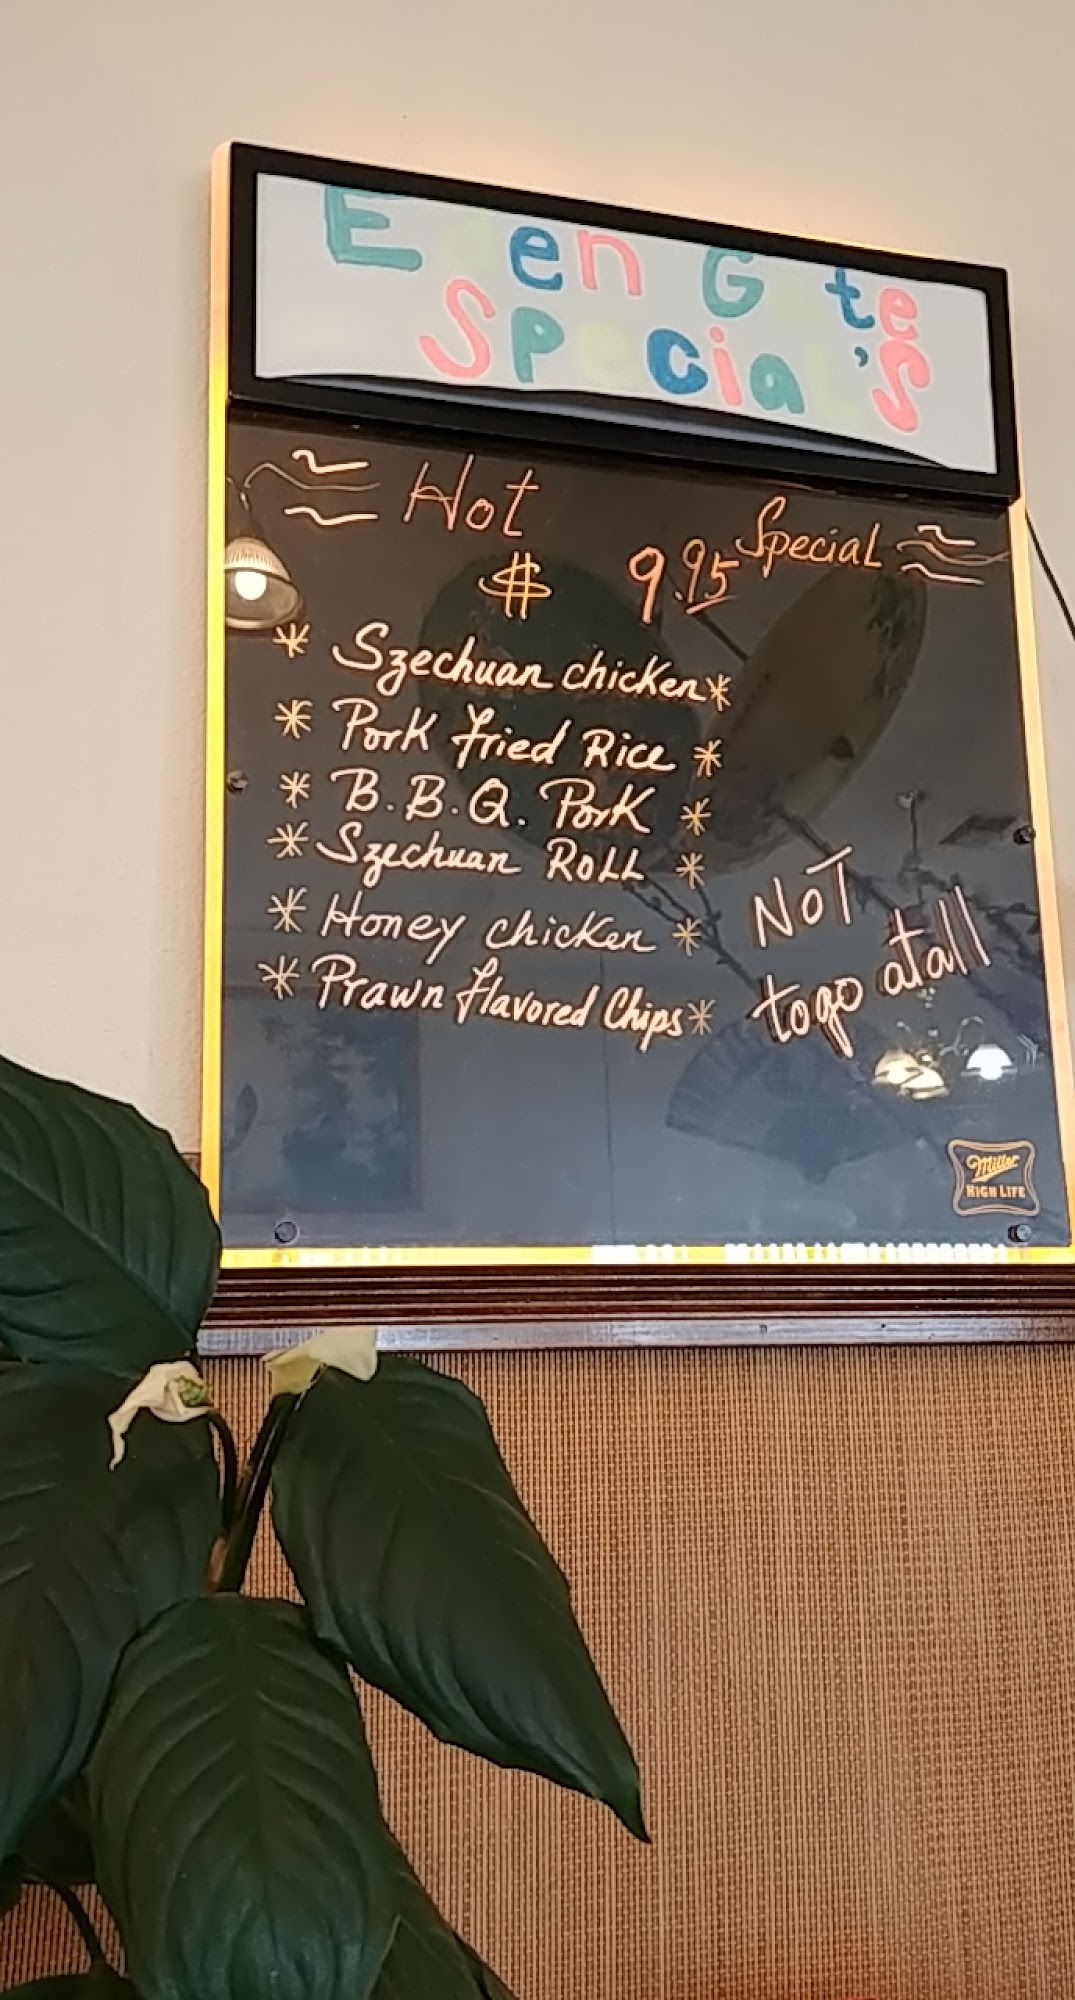 Eden Gate
Special's
Hot Special
$ 9.95
* Szechuan chicken *
* Pork Fried Rice *
* B.B.Q. Pork *
* Szechuan Roll *
* Honey chicken *
* Prawn flavored Chips *
NoT
togo atall
Miller
HIGH LIFE